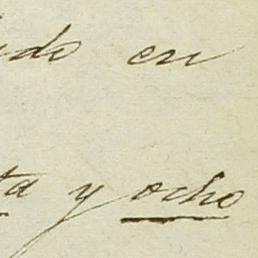 ido en
ta y ocho